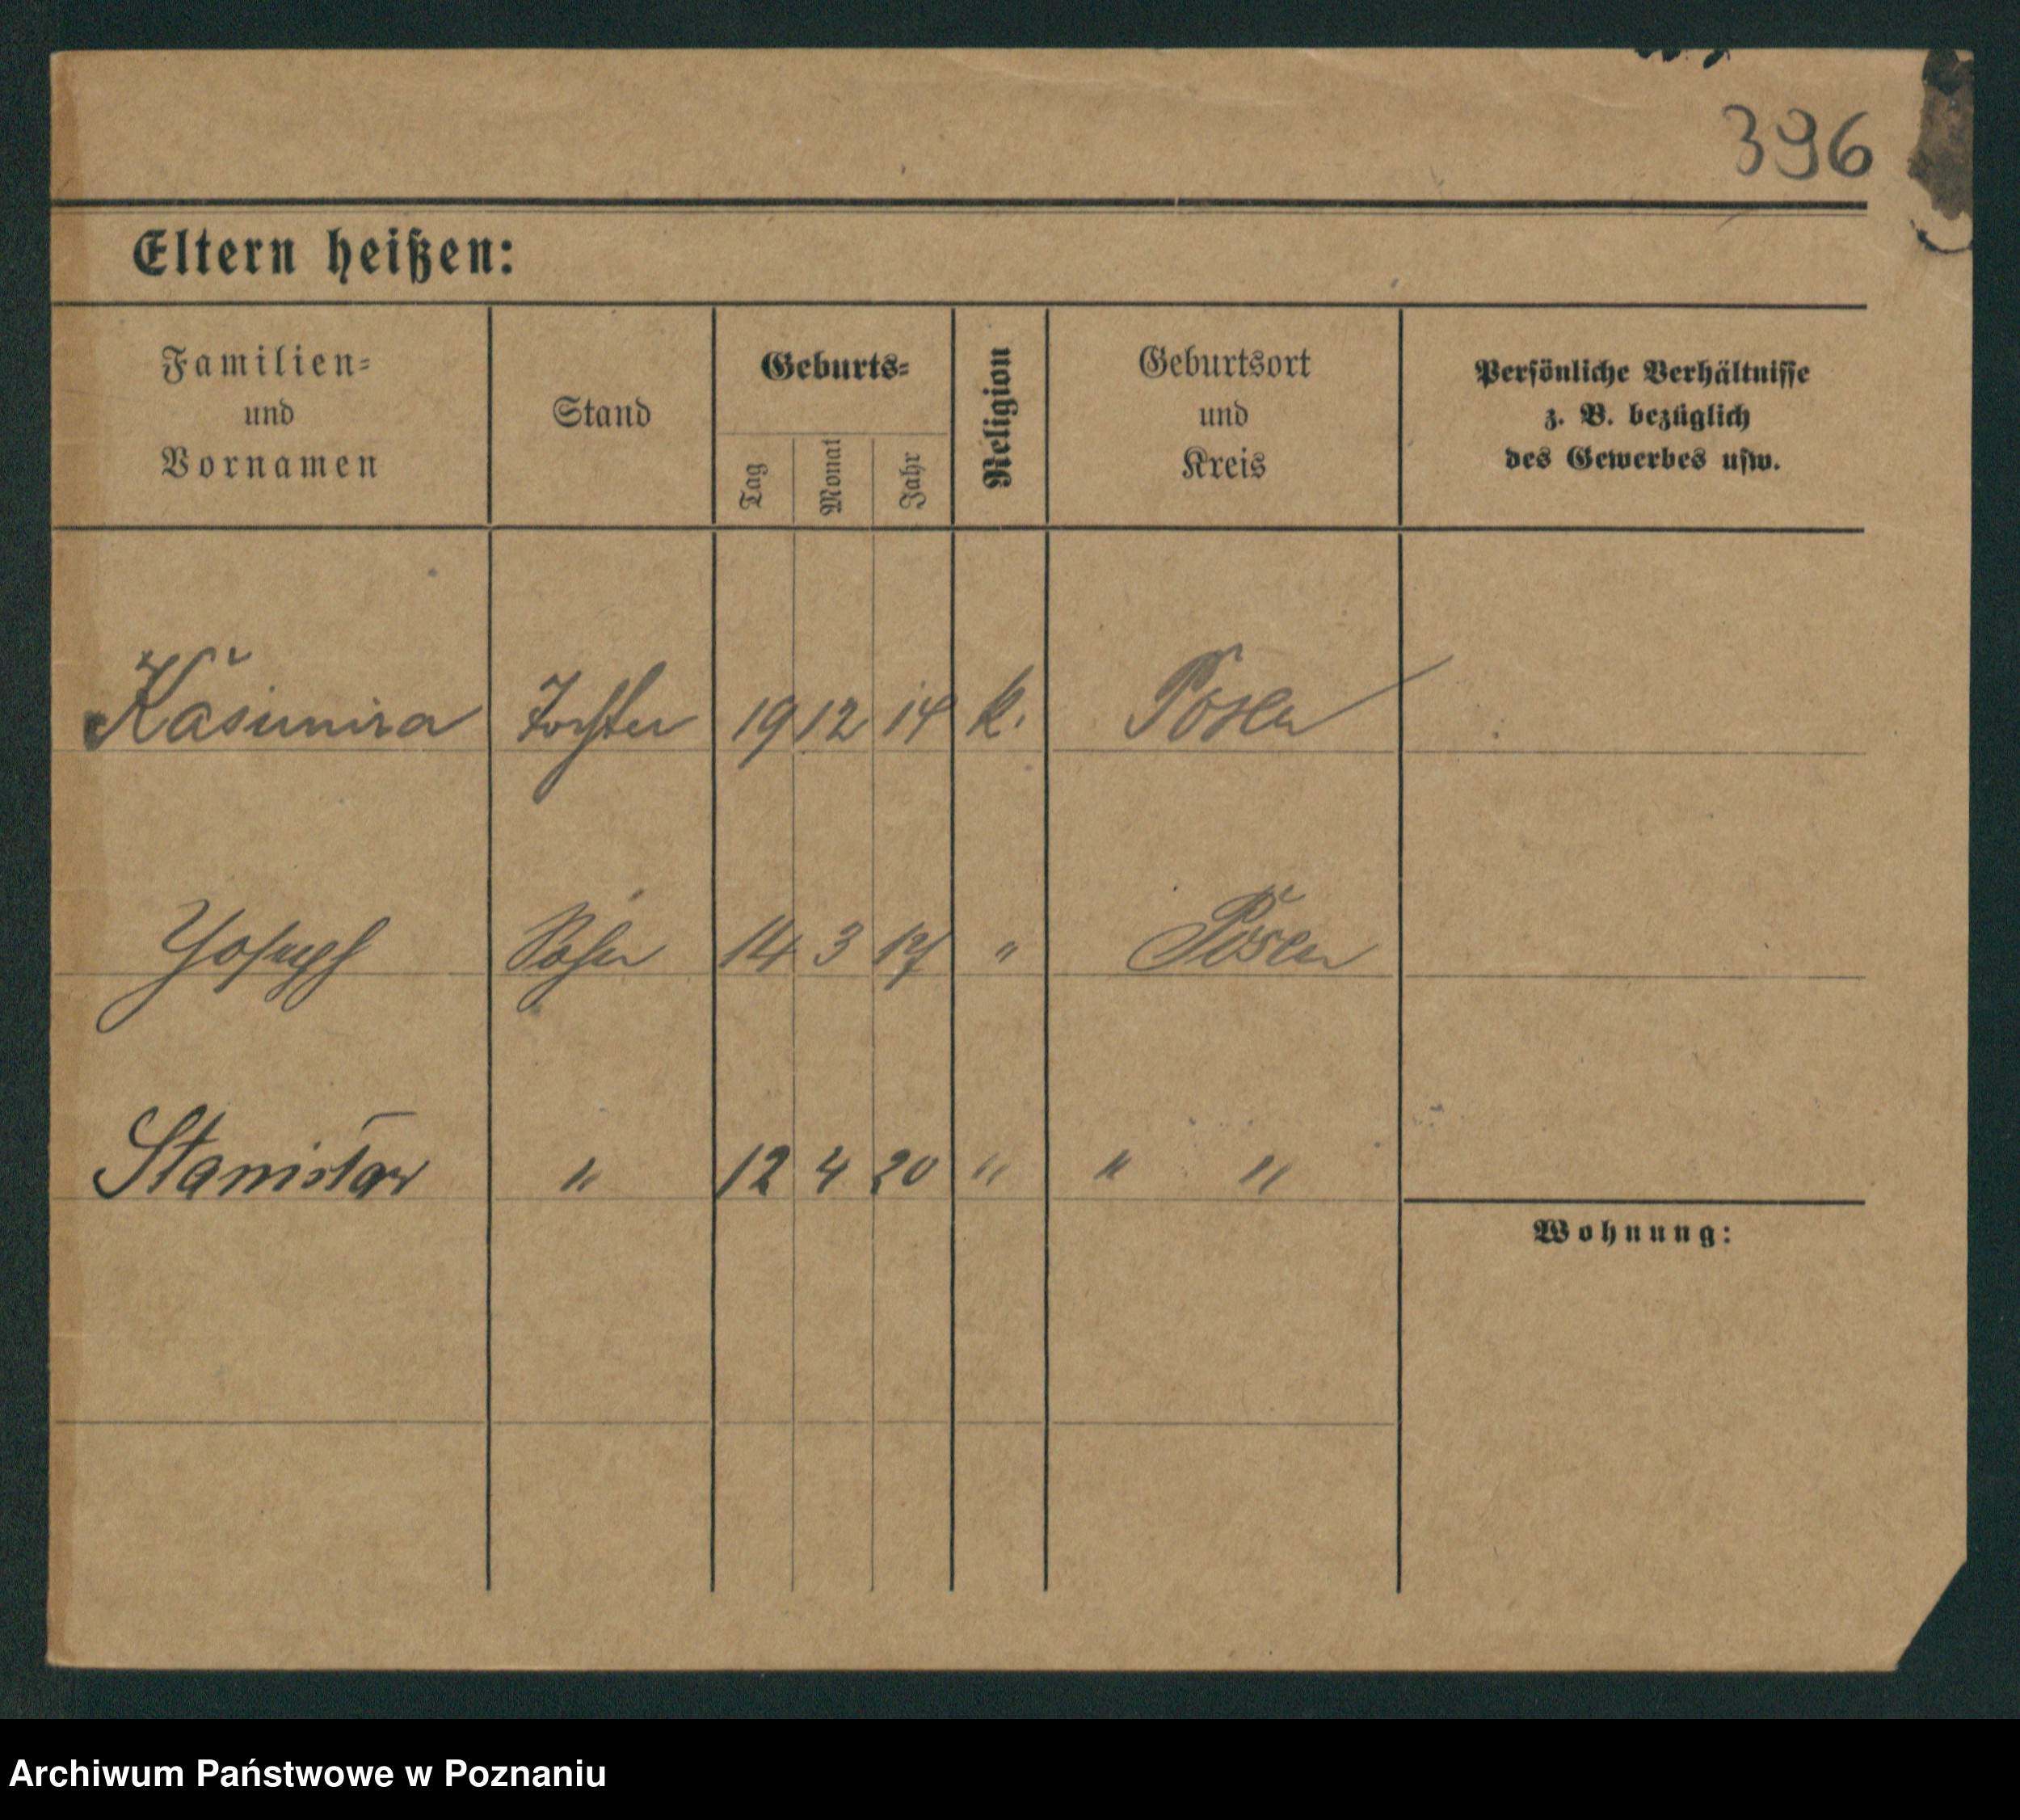 396
Eltern heißen:
Familien=
und
Vornamen
Stand
Geburts=
Tag
Monat
Jahr
Religion
Geburtsort
und
Kreis
Persönliche Verhältnisse
z. B. bezüglich
des Gewerbes usw.
Kasimira Tochter 19 12 14 k. Posen
Joseph Sohn 14 3 17 " Posen
Stanisław " 12 4 20 " " "
Wohnung:
Archiwum Państwowe w Poznaniu